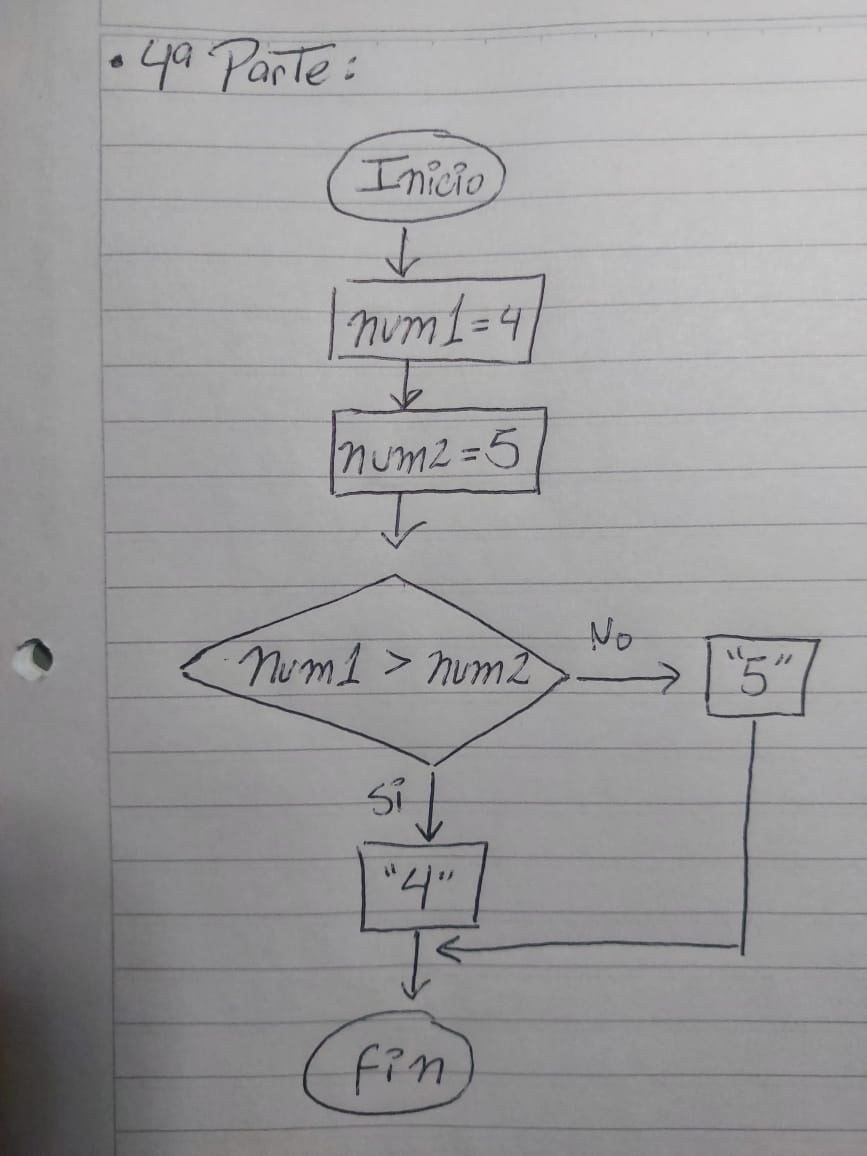 • 4ª Parte:
Inicio
num1=4
num2=5
num1 > num2
No
"5"
Si
"4"
Fin